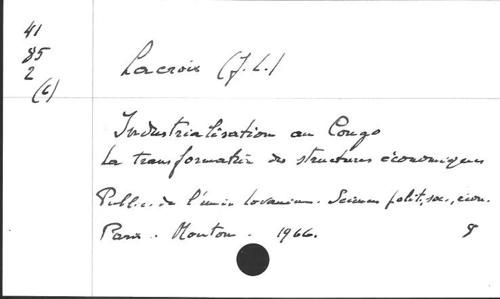 41
85
2
(6)
Lacroix (J.L.)
Industrialisation au Congo
La transformation des structures économiques
Public. de l'univ Lovanium. Sciences polit, soc., econ.
Paris. Mouton. 1966. 8